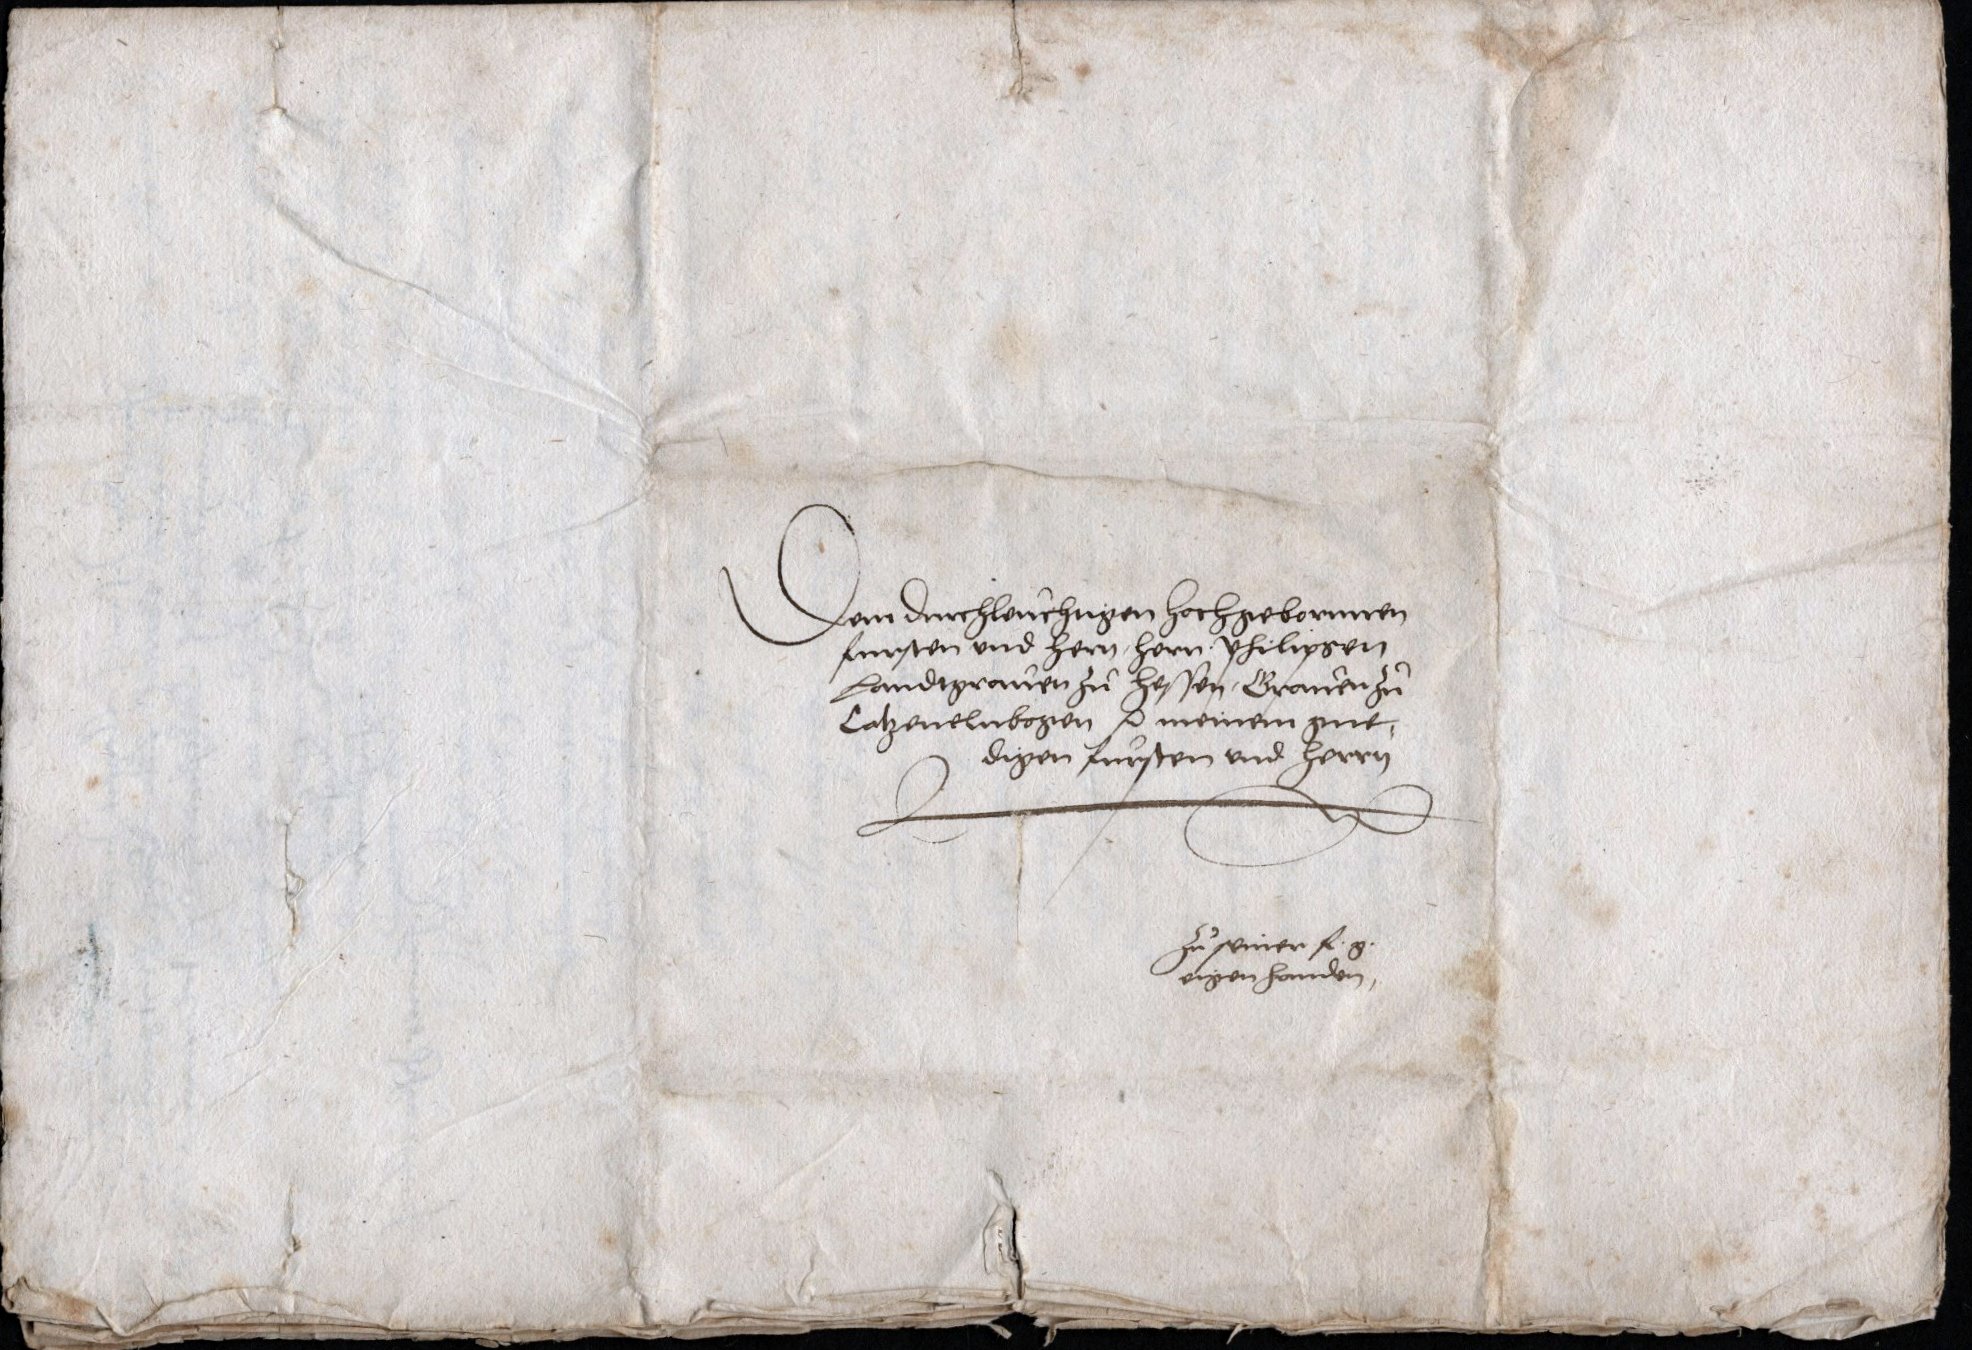 Dem durchleuchtigen hochgebornnen
fursten und hern, hern philipsen
Landtgrauen zu hessen, Grauen zu
Catzenelnbogen p meinem gne,
digen fursten und herrn
zu seiner f. g.
eigen handen,